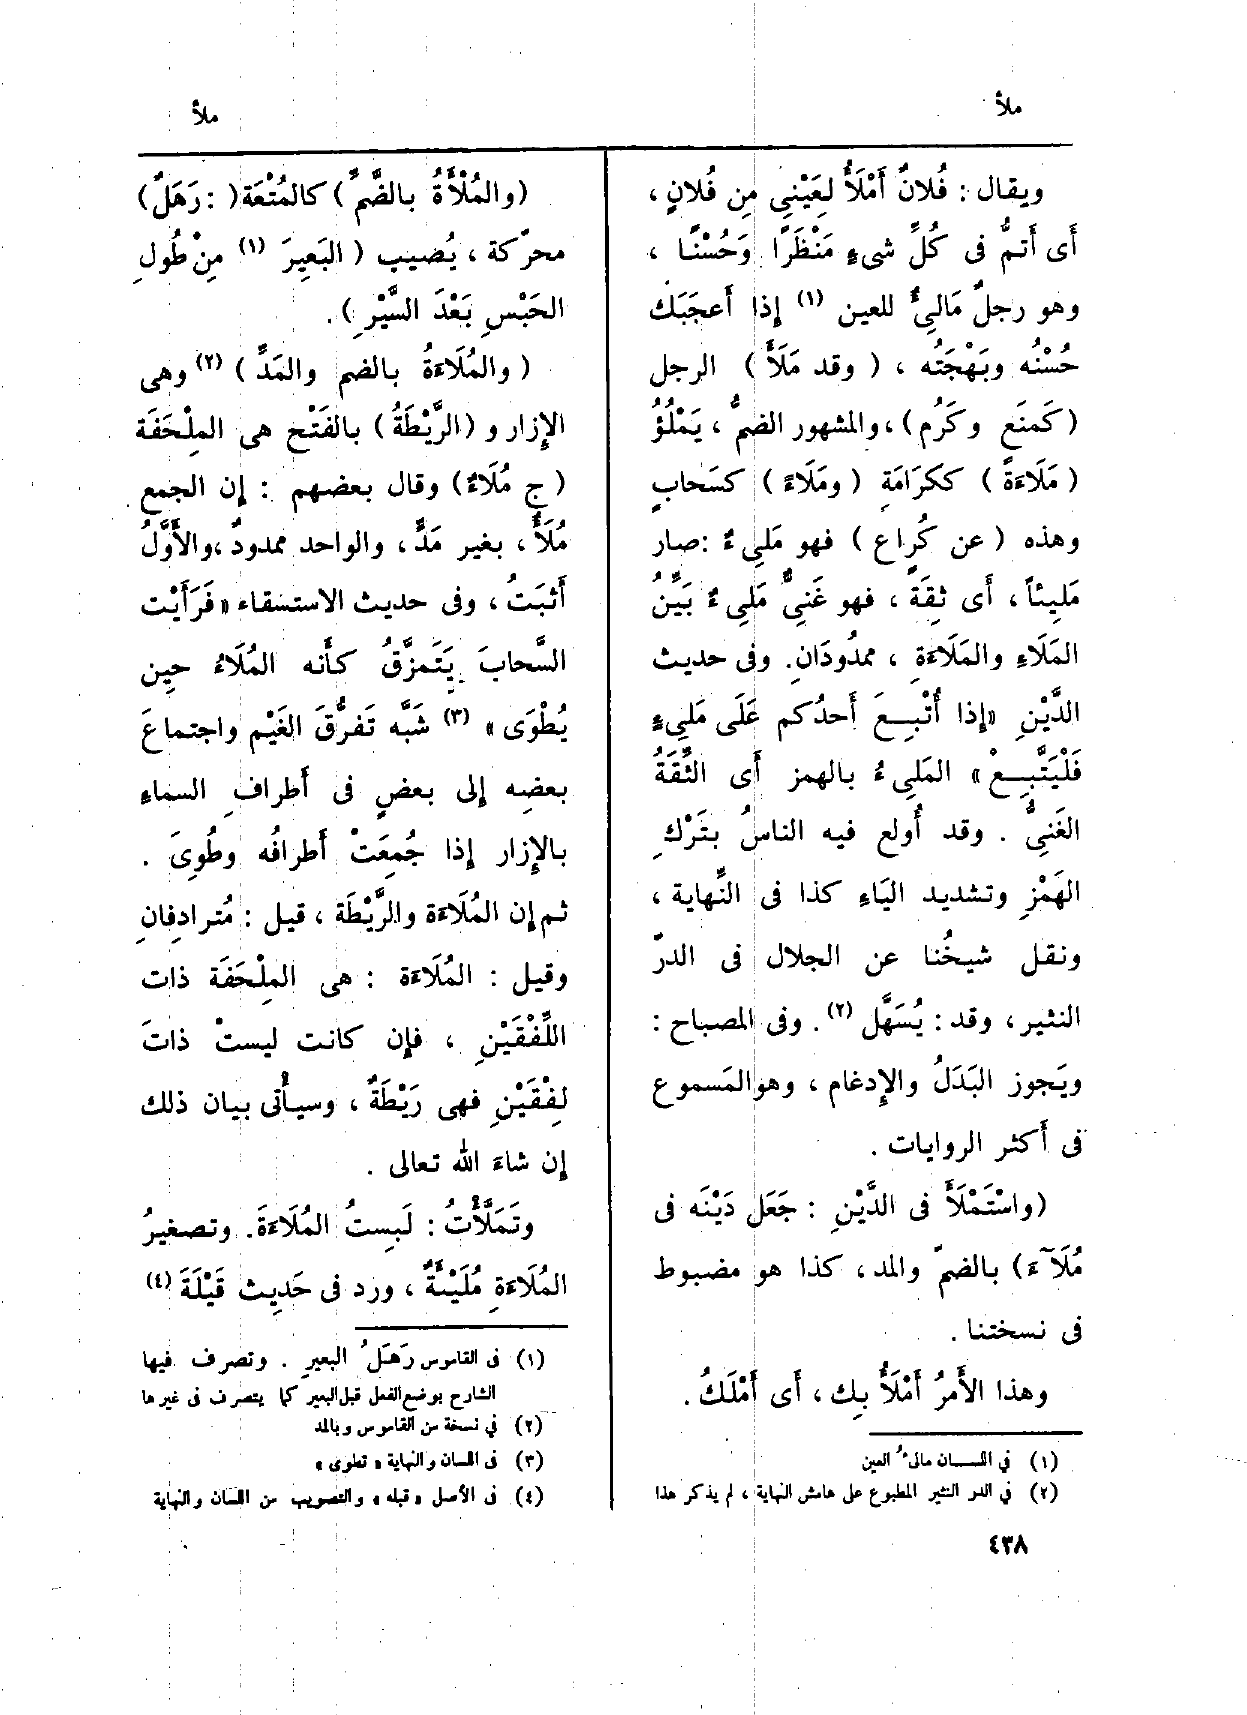 ملأ
ملأ
ويقال : فُلانٌ أَمْلَأُ لِعَيْنِي مِن فُلانٍ ،
أَى أَتمُّ فى كُلِّ شىءٍ مَنْظَرًا وَحُسْنًا ،
وهو رجلٌ مَالِئٌ للعين (١) إِذا أَعجَبَك
حُسْنُه وبَهْجَتُه ، ( وقد مَلَأَ ) الرجل
(كَمنَع وكَرُم) ، والمشهور الضمُّ ، يَمْلُؤُ
( مَلَاءَةً ) ككَرَامَةِ ( ومَلَاءً ) كسَحابٍ
وهذه ( عن كُراع ) فهو مَلِىءٌ :صار
مَلِيئاً ، أَى ثِقَةً ، فهو غَنِىٌّ مَلِىءٌ بَيِّنُ
المَلَاءِ والمَلَاءَةِ ، ممدُودَانِ. وفى حديث
الدَّيْنِ «إِذا أُتْبِعَ أَحدُكم عَلَى مَلِىءٍ
فَلْيَتَّبِعْ» المَلِىءُ بالهمز أَى الثِّقَةُ
الغَنِىُّ . وقد أُولع فيه الناسُ بتَرْكِ
الهَمْزِ وتشديد اليَاءِ كذا فى النِّهاية ،
ونقل شيخُنا عن الجلال فى الدرّ
النثير ، وقد : يُسَهَّل (٢) . وفى المصباح :
ويَجوز البَدَلُ والإِدغام ، وهو المَسموع
فى أَكثر الروايات .
(واسْتَمْلَأَ فى الدَّيْنِ : جَعَل دَيْنَه فى
مُلَآءَ) بالضمّ والمد ، كذا هو مضبوط
فى نسختنا .
وهذا الأَمرُ أَمْلَأُ بِك ، أَى أَمْلَكُ .
(١) في اللسان مالىءُ العين
(٢) في الدر النثير المطبوع على هامش النهاية ، لم يذكر هذا
(والمُلْأَةُ بالضَّمِّ) كالمُتْعَة (: رَهَلٌ)
محرّكة ، يُصيب ( البَعِيرَ (١) مِنْ طُولِ
الحَبْسِ بَعْدَ السَّيْرِ ) .
( والمُلَاءَةُ بالضم والمَدِّ ) (٢) وهى
الإِزار و (الرَّيْطَةُ) بالفَتْح هى المِلْحَفَة
( ج مُلَاءٌ) وقال بعضهم : إِن الجمع
مُلَأٌ ، بغير مَدٍّ ، والواحد ممدودٌ ، والأَوَّلُ
أَثبَتُ ، وفى حديث الاستسقاء «فَرَأَيْت
السَّحابَ يَتَمزَّقُ كأَنه المُلَاءُ حِين
يُطْوَى» (٣) شَبَّه تَفرُّقَ الغَيْم واجتماعَ
بعضِه إِلى بعضٍ فى أَطرافِ السماءِ
بالإِزار إِذا جُمِعَتْ أَطرافُه وطُوِىَ .
ثم إِن المُلَاءَة والرَّيْطَة ، قيل : مُترادِفانِ
وقيل : المُلَاءَة : هى المِلْحَفَة ذات
اللِّفْقَيْنِ ، فإِن كانت ليستْ ذاتَ
لِفْقَيْنِ فهى رَيْطَةٌ ، وسيأْتى بيان ذلك
إِن شاءَ الله تعالى .
وتَمَلَّأْتُ : لَبِستُ المُلَاءَةَ. وتصغيرُ
المُلَاءَةِ مُلَيْئَةٌ ، ورد فى حَدِيث قَيْلَةَ (٤)
(١) فى القاموس رَهَلُ البعيرِ . وتصرف فيها
الشارح بوضع الفعل قبل البعير كما يتصرف فى غيرها
(٢) في نسخة من القاموس وبالمد
(٣) فى اللسان والنهاية « تطوى »
(٤) فى الأصل « قبله » والتصويب من اللسان والنهاية
٤٣٨